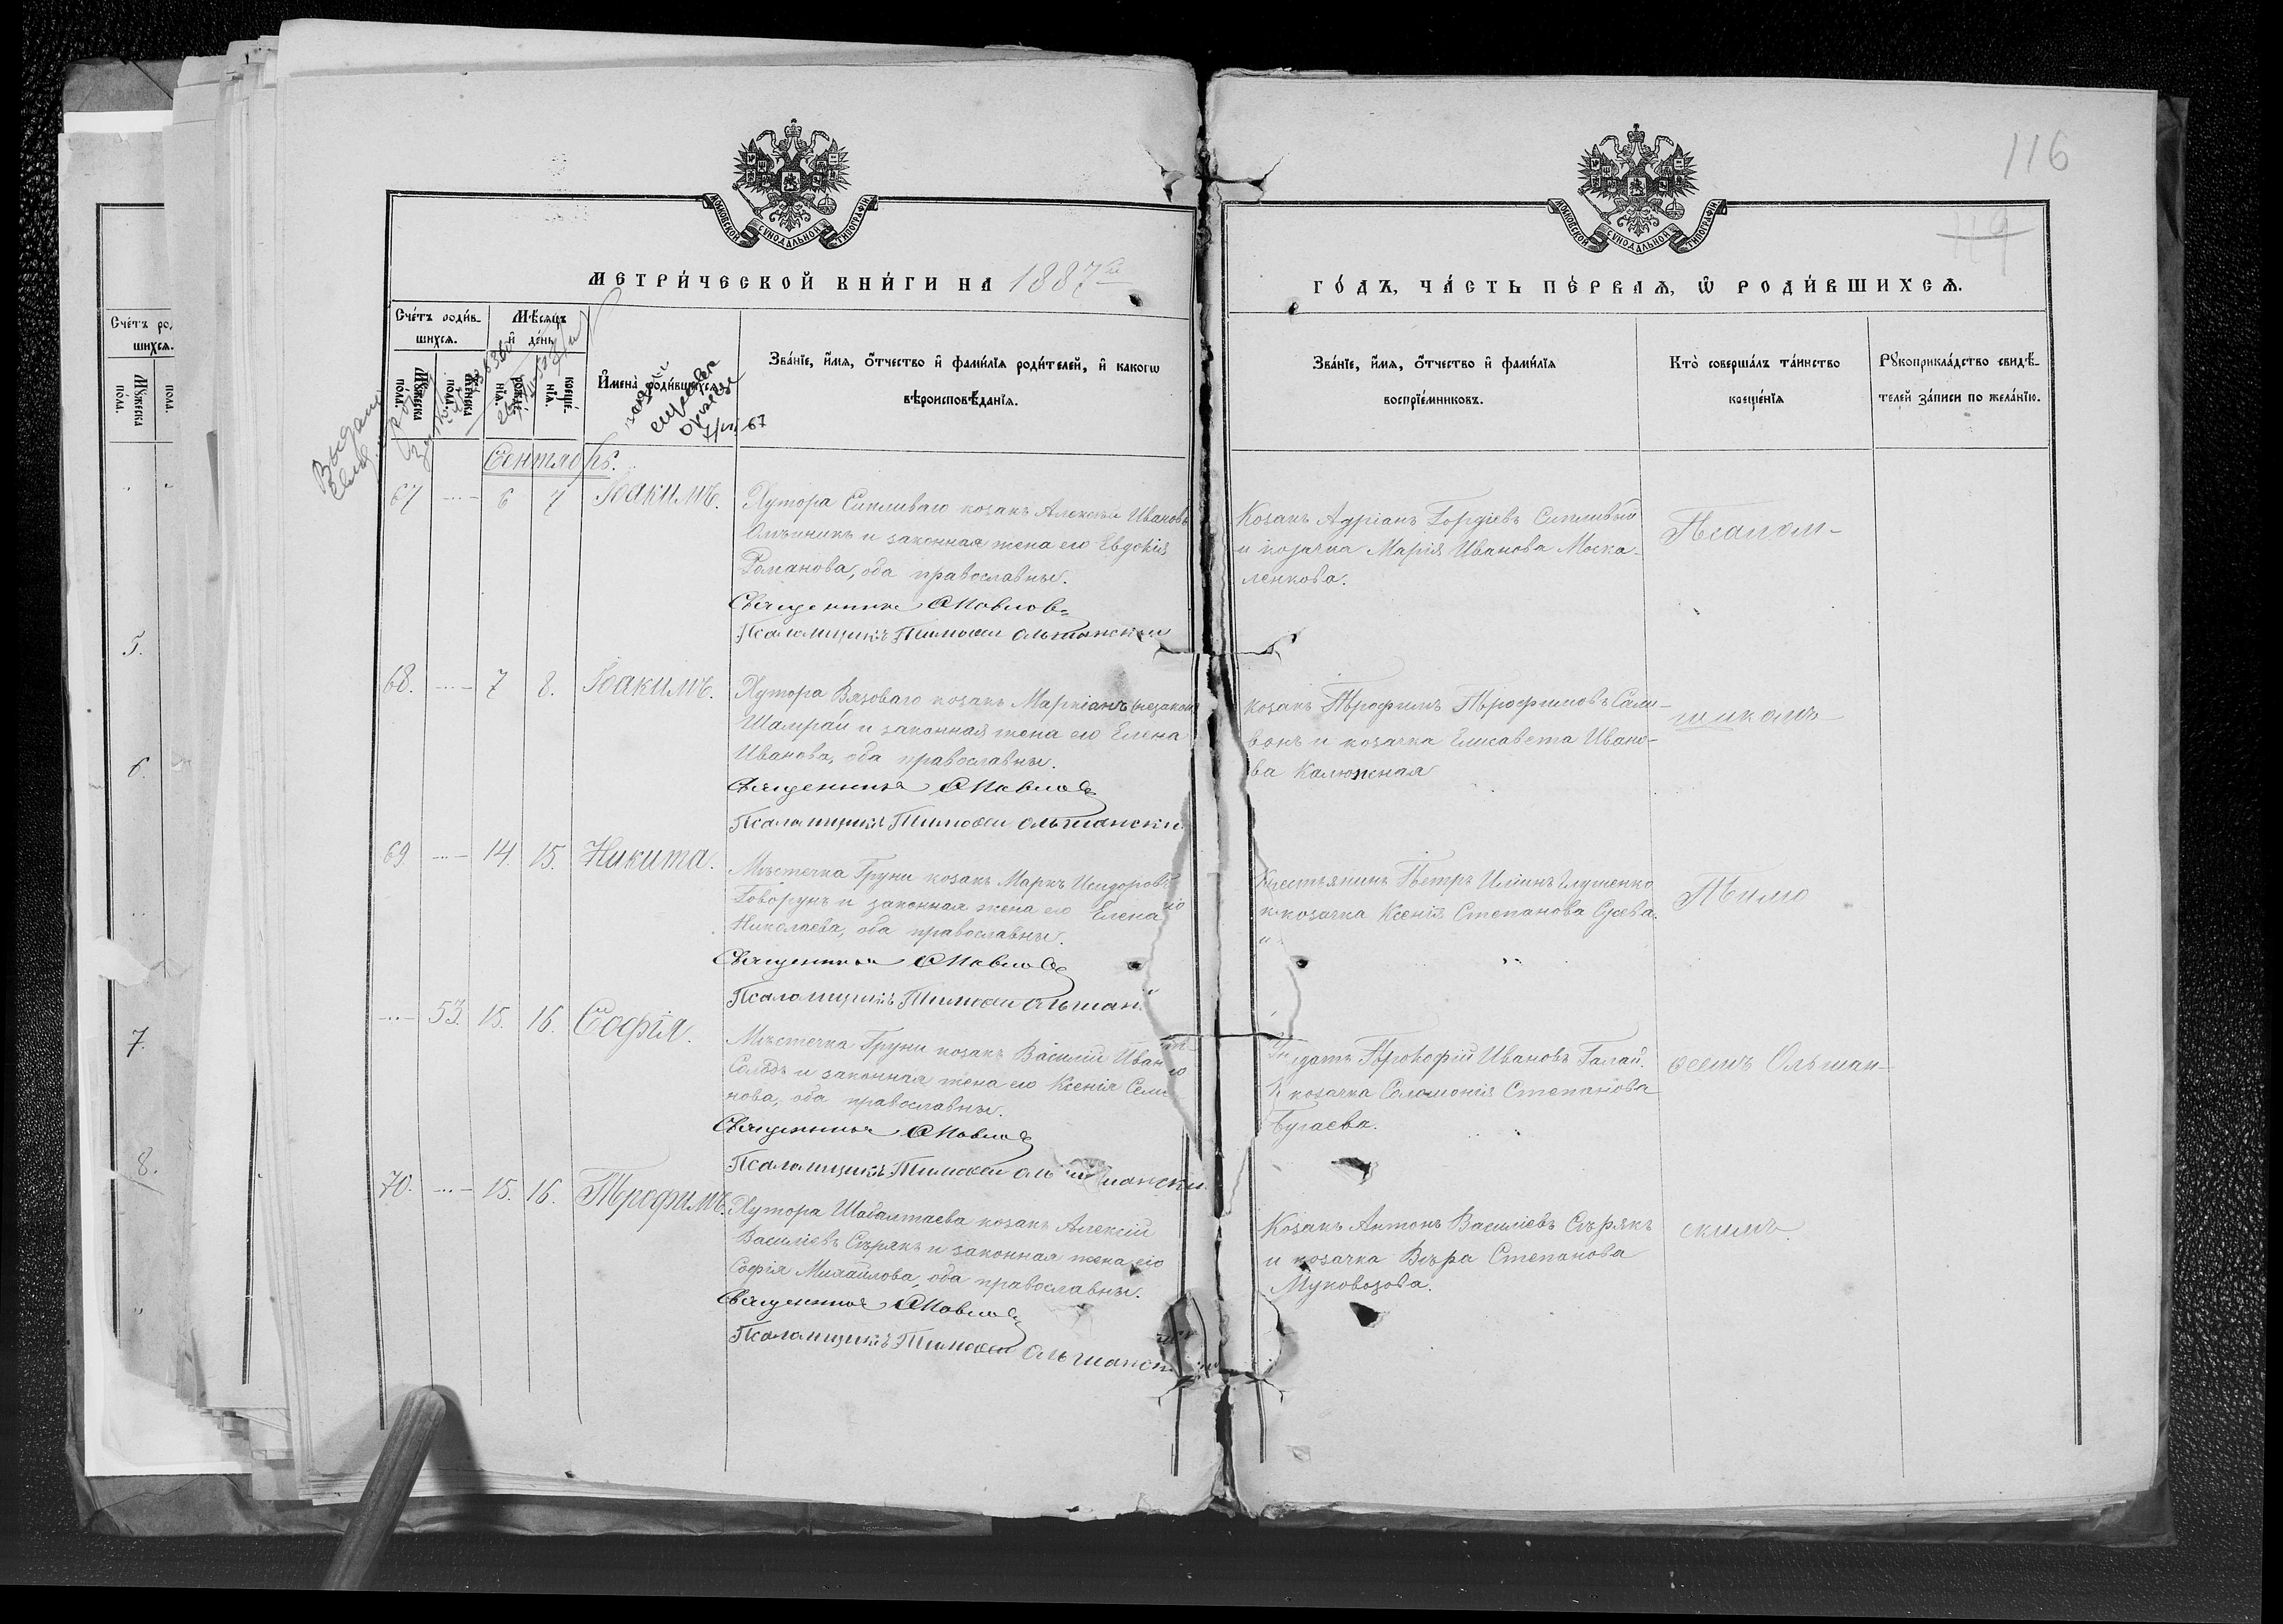 116
119
МОСКОВСКОЙ СѴНОДАЛЬНОЙ ТИПОГРАФІИ
МОСКОВСКОЙ СѴНОДАЛЬНОЙ ТИПОГРАФІИ
МЕТРИ́ЧЕСКОЙ КНИ́ГИ НА 1887й
ГО́ДЪ, ЧА́СТЬ ПЕ́РВАѦ, Ѿ РОДИ́ВШИХСѦ.
Сче́тъ роди́в-
шихсѧ.
Мѣ́сѧцъ
и҆ де́нь
Мꙋ́жеска
по́ла.
Же́нска
по́ла.
рожде́-
нїѧ.
креще́-
нїѧ.
И҆мена̀ роди́вшихсѧ.
Зва́нїе, и҆́мѧ, ѻ҆́тчество и҆ фами́лїѧ роди́телей, и҆ какогѡ
вѣроисповѣ́данїѧ.
Зва́нїе, и҆́мѧ, ѻ҆́тчество и҆ фами́лїѧ
воспрїе́мниковъ.
Кто̀ соверша́лъ та́инство
креще́нїѧ
Рꙋкоприкла́дство свидѣ́-
телей за́писи по жела́нїю.
Сче́тъ ро
шихсѧ.
Мꙋ́жеска
по́ла.
пола.
5.
6.
7.
8.
67
Сентябрь.
67 6 7 Іоакимъ.
Хутора Сипливаго козакъ Алексѣй Ивановъ
Олѣйникъ и законная жена его Евдокія
Романова, оба православные.
Священникъ С Павлов
Псаломщикъ Тимофей Ольшанский
Козакъ Адріанъ Гордіевъ Сипливый
и козачка Марія Иванова Моска-
ленкова.
Псалом-
68. 7 8. Іоакимъ.
Хутора Вязоваго козакъ Маркіанъ (незакон
Шамрай и законная жена его Елена
Иванова, оба православные.
Священникъ С Павлов
Псаломщикъ Тимофей Ольшански
козакъ Трофимъ Трофимовъ Сали-
вонъ и козачка Елисавета Ивано-
ва Калюжная
щикомъ
69. 14. 15. Никита.
Мѣстечка Груни козакъ Маркъ Исидоровъ
Говорунъ и законная жена его Елена
Николаева, оба православные.
Священникъ С Павлов
Псаломщикъ Тимофей Ольшан
Крестьянинъ Петръ Иліинъ Глущенко
и козачка Ксенія Степанова Сусева.
Тимо
53. 15. 16. Софія.
Мѣстечка Груни козакъ Василій Иван
Солодъ и законная жена его Ксенія Семи
нова, оба православные.
Священникъ С Павлов
Псаломщикъ Тимофей Ольшански
датъ Прокофій Ивановъ Галай.
козачка Соломонія Степанова
Бугаева.
ѳеемъ Ольшан-
70. 15. 16. Трофимъ.
Хутора Шабалтаева козакъ Алексій
Василіевъ Сѣрякъ и законная жена его
Софія Михайлова, оба православные.
Священникъ С Павлов
Псаломщикъ Тимофей Ольшанск
Козакъ Антонъ Василіевъ Сѣрякъ
и козачка Вѣра Степанова
Муковозова.
скимъ.